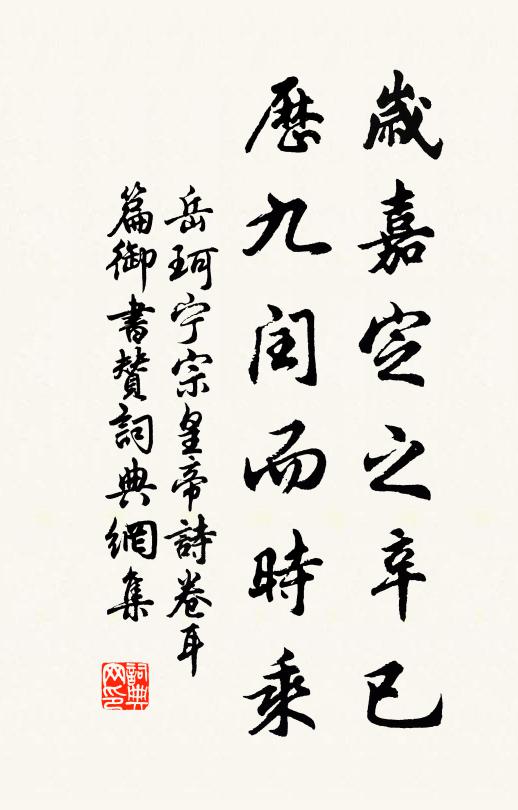 歲嘉定之辛巳
歷九閏而時乘
岳珂宁宗皇帝詩卷耳
篇御書贊詞典網集
詞典
网印